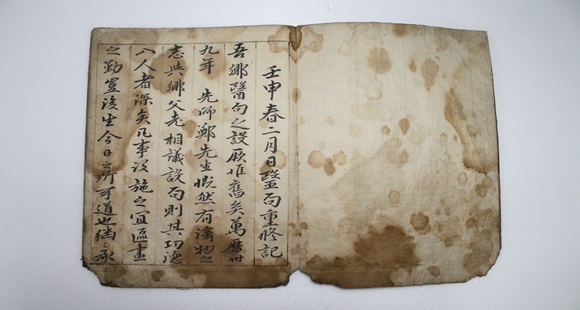 壬申春二月日醫局重修記
吾鄉醫局之設厥惟舊矣萬曆卅
九年先師鄭先生慨然有濟物之
志與鄉父老相議設局則其功德
入人者深矣凡事設施之宜區畫
之勤豈後生今日之所可道也承